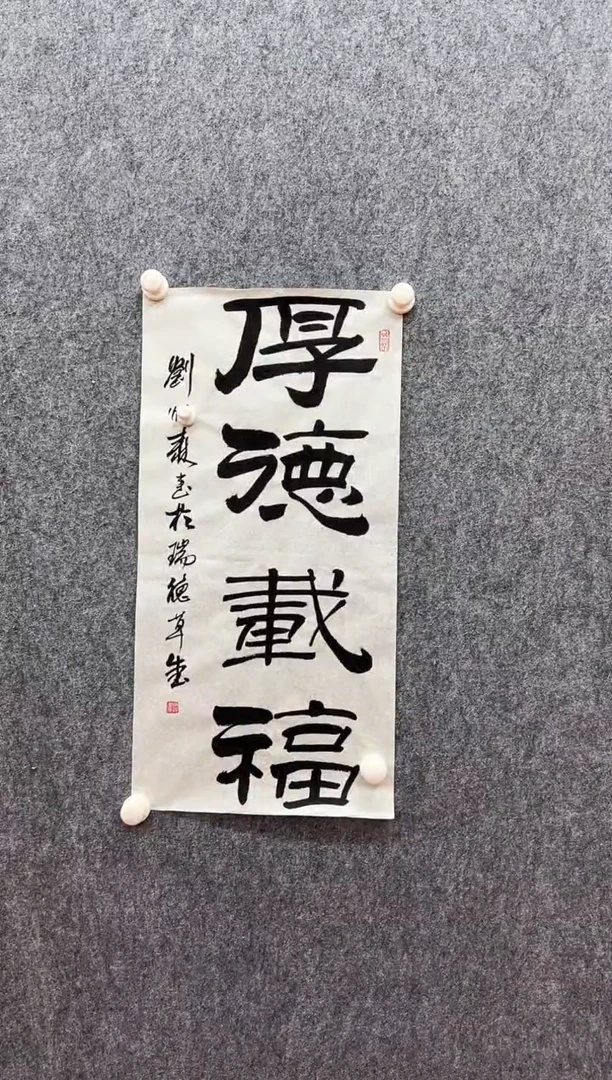 厚德載福
劉
書於瑞德草堂